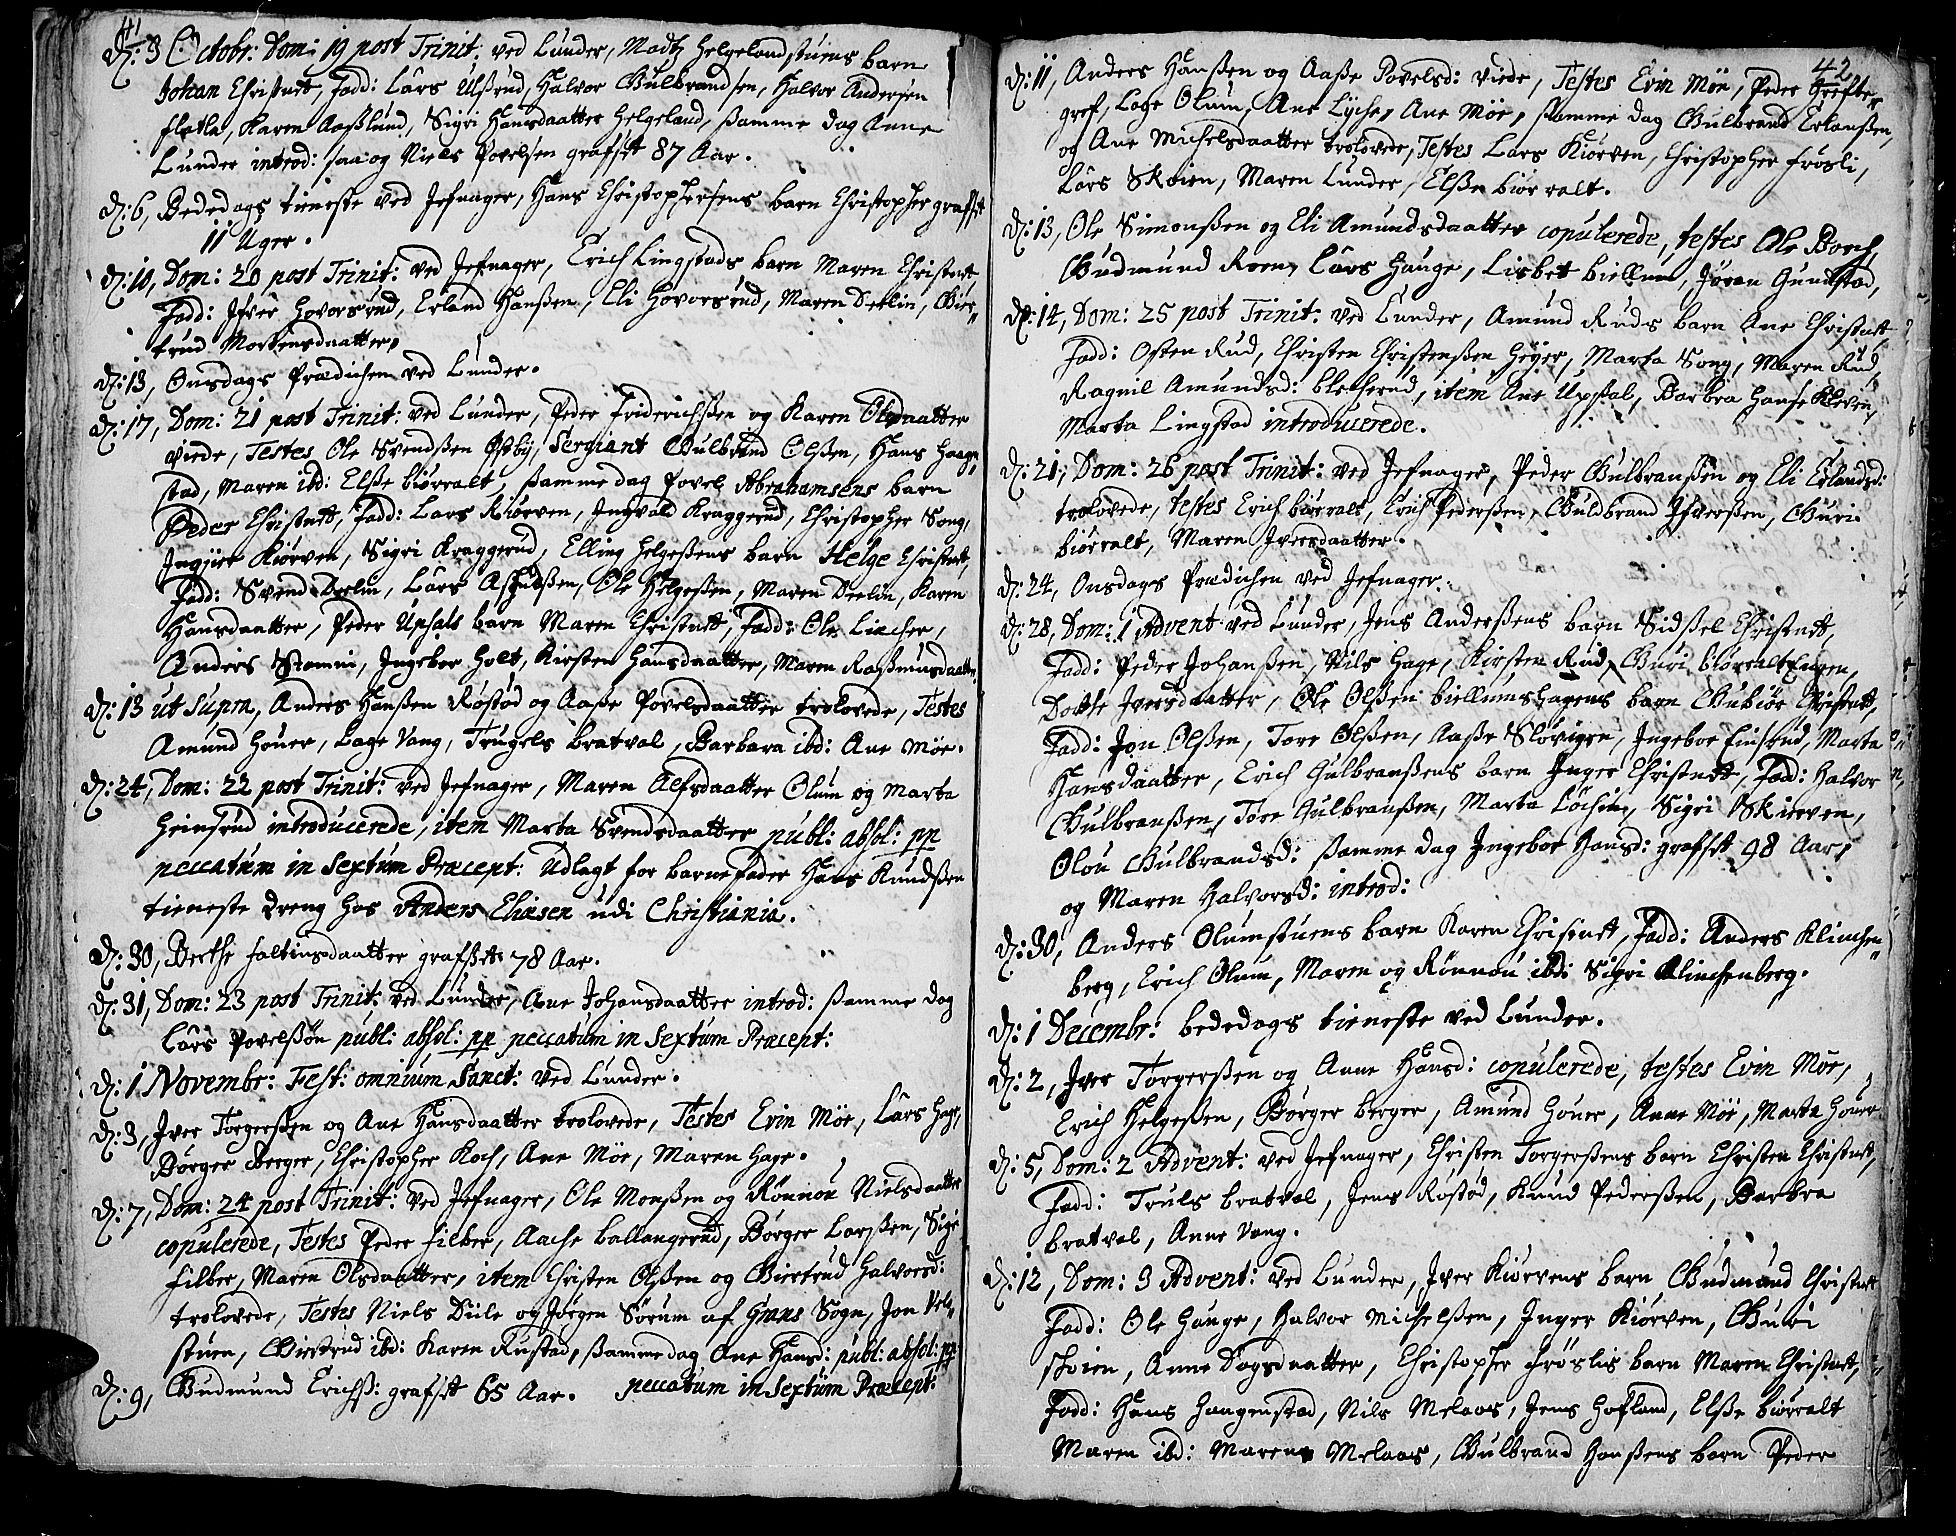 41
D: 3 Octobr: Dom: 19 post Trinit: ved Lunder, Madtz Helgelandstuens barn
Johan Christnet, Fadd: Lars Ulsrud, Halvor Gulbrandsen, Halvor Andersen
flatla, Karen Aaslund, Sigri Hansdaatter Helgeland, samme dag Anne
Lunder introd: saa og Niels Povelsen grafsat 87 Aar.
D: 6, Bededags tieneste ved Jefnager, Hans Christophersens barn Christopher grafsat
11 Uger.
D: 10, Dom: 20 post Trinit: ved Jefnager, Erich Lingstads barn Maren Christnet
Fadd: Ifver Hovorsrud, Erland Hanßen, Eli Hovorsrud, Maren Deelin, Gier„
trud Mortensdaatter,
D: 13, Onsdags Prædichen ved Lunder.
D: 17, Dom: 21 post Trinit: ved Lunder, Peder Friderichßen og Karen Olsdaatter
viede, Testes Ole Svendßen Ostby, Sergiant Gulbrand Olßen, Hans Haagen„
stad, Maren ibd: Elße biørralt, ßamme dag Povel Abrahamsens barn
Peder Christnet, Fadd: Lars Kiørven, Ingvald Kraggerud, Christopher Song,
Ingier Kiørven, Sigri Kraggerud, Elling Helgeßens barn Helge Christnet,
Fadd: Svend Deelin, Lars Asgulßen, Ole Helgeßen, Maren Deelin, Karen
Hansdaatter, Peder Upsals barn Maren Christnet, Fadd: Ole Liecher,
Anders Stomni, Ingebor Holt, Kirsten Hansdaatter, Maren Raßmusdaatter.
D: 13 ut supra, Anders Hanßen Røstød og Aaße Povelsdaatter trolovede, Testes
Amund Houer, Lage Vang, Trugels bratval, Barbara ibd: Ane Möe.
D: 24, Dom: 22 post Trinit: ved Jefnager, Maren Alfsdaatter Olum og Marta
Heinsrud introducerede, item Marta Svendsdaatter publ: absol: pp
peccatum in Sextum Præcept: Udlagt for barnefader Hans Knudßen
tieneste dreng hos Anders Eliæsen udi Christiania.
D: 30, Berthe Faltinsdaatter grafsat 78 Aar.
D: 31, Dom: 23 post Trinit: ved Lunder, Ane Johansdaatter introd: ßamme dag
Lars Povelßøn publ: absol: pp peccatum in Sextum Præcept:
D: 1 Novembr: Fest: omnium Sanct: ved Lunder.
D: 3, Iver Torgerßen og Ane Hansdaatter trolovede, Testes Evin Möe, Lars Hage,
Börger berger, Christopher Koch, Ane Möe, Maren Hage.
D: 7, Dom: 24 post Trinit: ved Jefnager, Ole Monßen og Rönnou Nielsdaatter
copulerede, Testes Peder filber, Aache ballangerud, Börger Larßen, Sigri
filber, Maren Olsdaatter, item Christen Olßen og Giertrud Halvorsd:
trolovede, Testes Niels Diile og Jörgen Sörum af Grans Sogn, Jon Vel„
stuen, Giertrud ibd: Karen Rustad, ßamme dag Ane Hansd: publ: absol: pp
D: 9, Gudmund Erichß: grafsat 65 Aar. peccatum in Sextum Præcept:
42
D: 11, Anders Hanßen og Aaße Povelsd: viede, Testes Evin Möe, Peder
gref, Lage Olum, Ane Lyche, Ane Möe, ßamme dag Gulbrand Erlanßen,
og Ane Michelsdaatter trolovede, Testes Lars Kiørven, Christopher frösli,
Lars Skoien, Maren Lunder, Elße biørralt.
D: 13, Ole Simonßen og Eli Amundsdaatter copulerede, testes Ole Borch,
Gudmund Roen, Lars Hauge, Lisbet biellum, Jöran Gunstad,
D: 14, Dom: 25 post Trinit: ved Lunder, Amund Ruds barn Ane Christnet
Fadd: Osten Rud, Christen Christenßen Höyer, Marta Song, Maren Rud,
Ragnil Amundsd: blecherud, item Ane Upsal, Barbra Hansekleven,
Marta Lingstad introducerede.
D: 21, Dom: 26 post Trinit: ved Jefnager, Peder Gulbranßen og Eli Erlandsd:
trolovede, testes Erich biørralt, Erich Pederßen, Guldbrand Ifverßen, Guri
biørralt, Maren Iversdaatter.
D: 24, Onsdags Prædichen ved Jefnager.
D: 28, Dom: 1 Advent ved Lunder, Jens Anderßens barn Sidßel Christnet,
Fadd: Peder Johanßen, Nils Hage, Kirsten Rud, Guri biørralt Eugen,
Dorthe Iversdaatter, Ole Olßen biellumshagens barn Gubiör Christnet,
Fadd: Jon Olßen, Tore Olßen, Aaße Slövigen, Ingebor Finsrud, Marta
Hansdaatter, Erich Gulbranßens barn Inger Christnet, Fad: Halvor
Gulbranßen, Tore Gulbranßen, Marta Löihime, Sigri Skierven,
Olou Gulbrandsd: ßamme dag Ingebor Hansd: grafsat 98 Aar,
og Maren Halvorsd: introd:
D: 30, Anders Olumstuens barn Karen Christnet, Fadd: Anders Klinchen„
berg, Erich Olum, Maren og Rönnou ibd: Sigri Klinchenberg.
D: 1 Decembr: bededags tieneste ved Lunder.
D: 2, Iver Torgerßen og Anne Hansd: copulerede, testes Evin Möe,
Erich Helgeßen, Börger berger, Amund Houer, Anne Möe, Marta Houer
D: 5, Dom: 2 Advent: ved Jefnager, Christen Torgerßens barn Christen Christnet,
Fadd: Truls bratval, Jens Røstød, Knud Pederßen, Barbra
bratval, Anne Vang.
D: 12, Dom: 3 Advent: ved Lunder, Iver Kiørvens barn Gudmund Christnet
Fadd: Ole Hauge, Halvor Michelßen, Inger Kiørven, Guri
skoien, Anne Dagsdaatter, Christopher fröslis barn Maren Christnet,
Fadd: Hans Haagenstad, Nils Melaas, Jens Hofland, Elße biørralt
Maren ibd: Maren Melaas, Gulbrand Hanßens barn Peder